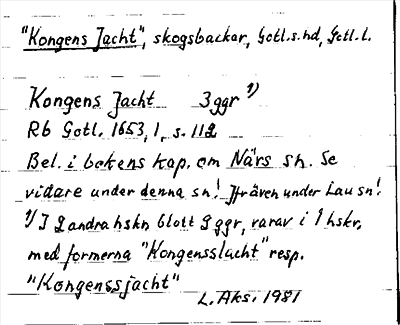 "Kongens Jacht", skogsbackar, Gotl.s.hd, Gotl.l.
Kongens Jacht 3ggr 1)
Rb Gotl. 1653, 1, s. 112
Bel. i bokens kap. om Närs sn. Se
vidare under denna sn! Jfr även under Lau sn!
1) I 2 andra hskr blott 2 ggr, varav i 1 hskr,
med formerna "Kongensslacht" resp.
"Kongenssjacht"
L. Aks. 1981